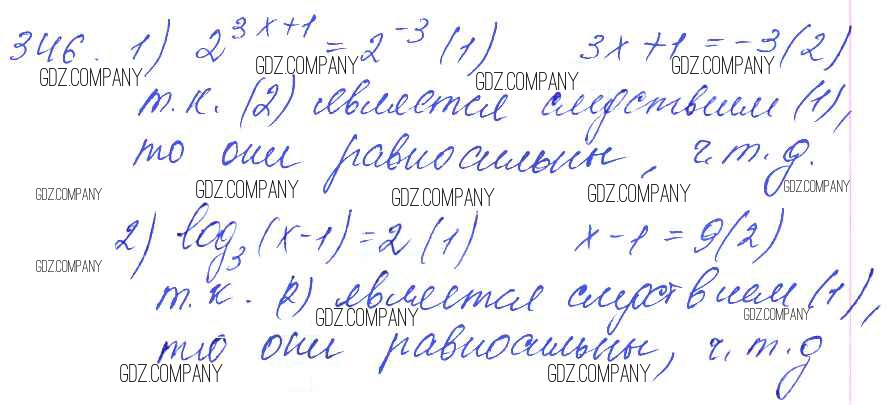 346. 1) 2^{3x+1} = 2^{-3} (1) 3x+1 = -3 (2)
GDZ.COMPANY GDZ.COMPANY GDZ.COMPANY GDZ.COMPANY
т.к. (2) является следствием (1),
то они равносильны, ч.т.д.
GDZ.COMPANY GDZ.COMPANY GDZ.COMPANY GDZ.COMPANY GDZ.COMPANY
2) log₃(x-1) = 2 (1) x-1 = 9 (2)
GDZ.COMPANY
т.к. (2) является следствием (1),
GDZ.COMPANY GDZ.COMPANY
то они равносильны, ч.т.д
GDZ.COMPANY GDZ.COMPANY